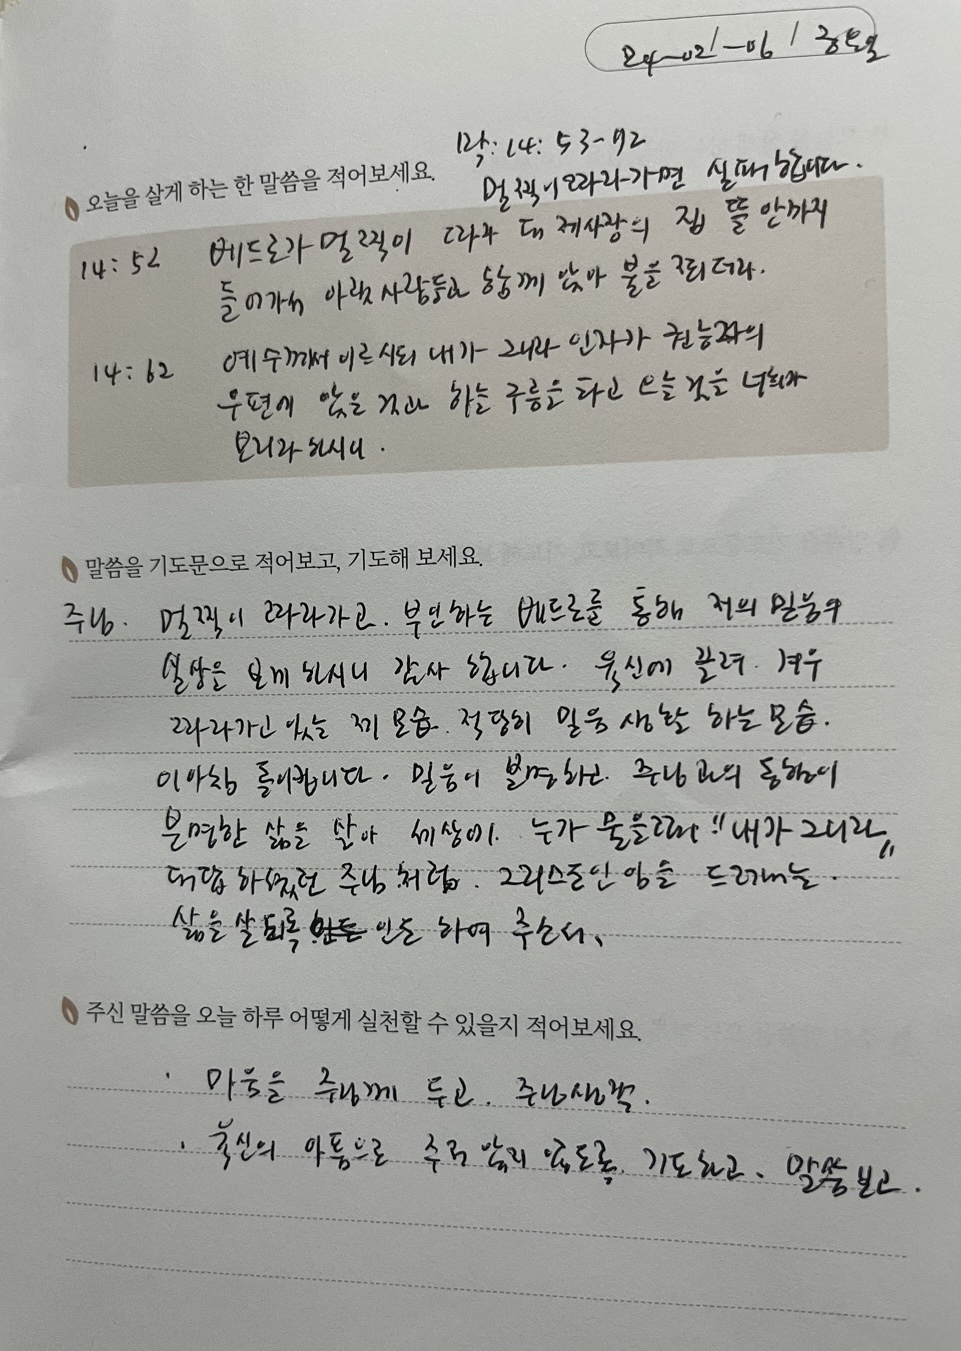 24-02-06 / 화요일
막: 14: 53-72
오늘을 살게 하는 한 말씀을 적어보세요.
멀찍이 따라가면 실패합니다.
14: 52 베드로가 멀찍이 따라 대제사장의 집 뜰 안까지
들어가서 아랫사람들과 함께 앉아 불을 쬐더라.
14: 62 예수께서 이르시되 내가 그니라 인자가 권능자의
우편에 앉은 것과 하늘 구름을 타고 오는 것을 너희가
보리라 하시니.
말씀을 기도문으로 적어보고, 기도해 보세요.
주님. 멀찍이 따라가고. 부인하는 베드로를 통해 저의 믿음의
실상을 보게 하시니 감사 합니다. 육신에 끌려. 겨우
따라가고 있는 제 모습. 적당히 믿음 생활 하는 모습.
이아침 돌이킵니다. 믿음이 분명하고 주님과의 동행이
분명한 삶을 살아 세상이. 누가 물을때 "내가 그니라"
대답 하셨던 주님처럼. 그리스도인 임을 드러내는.
삶을 살되록 인도 하여 주소서.
주신 말씀을 오늘 하루 어떻게 실천할 수 있을지 적어보세요.
· 마음을 주님께 두고. 주님생각.
· 육신의 아픔으로 주저 앉지 않도록. 기도하고. 말씀보고.